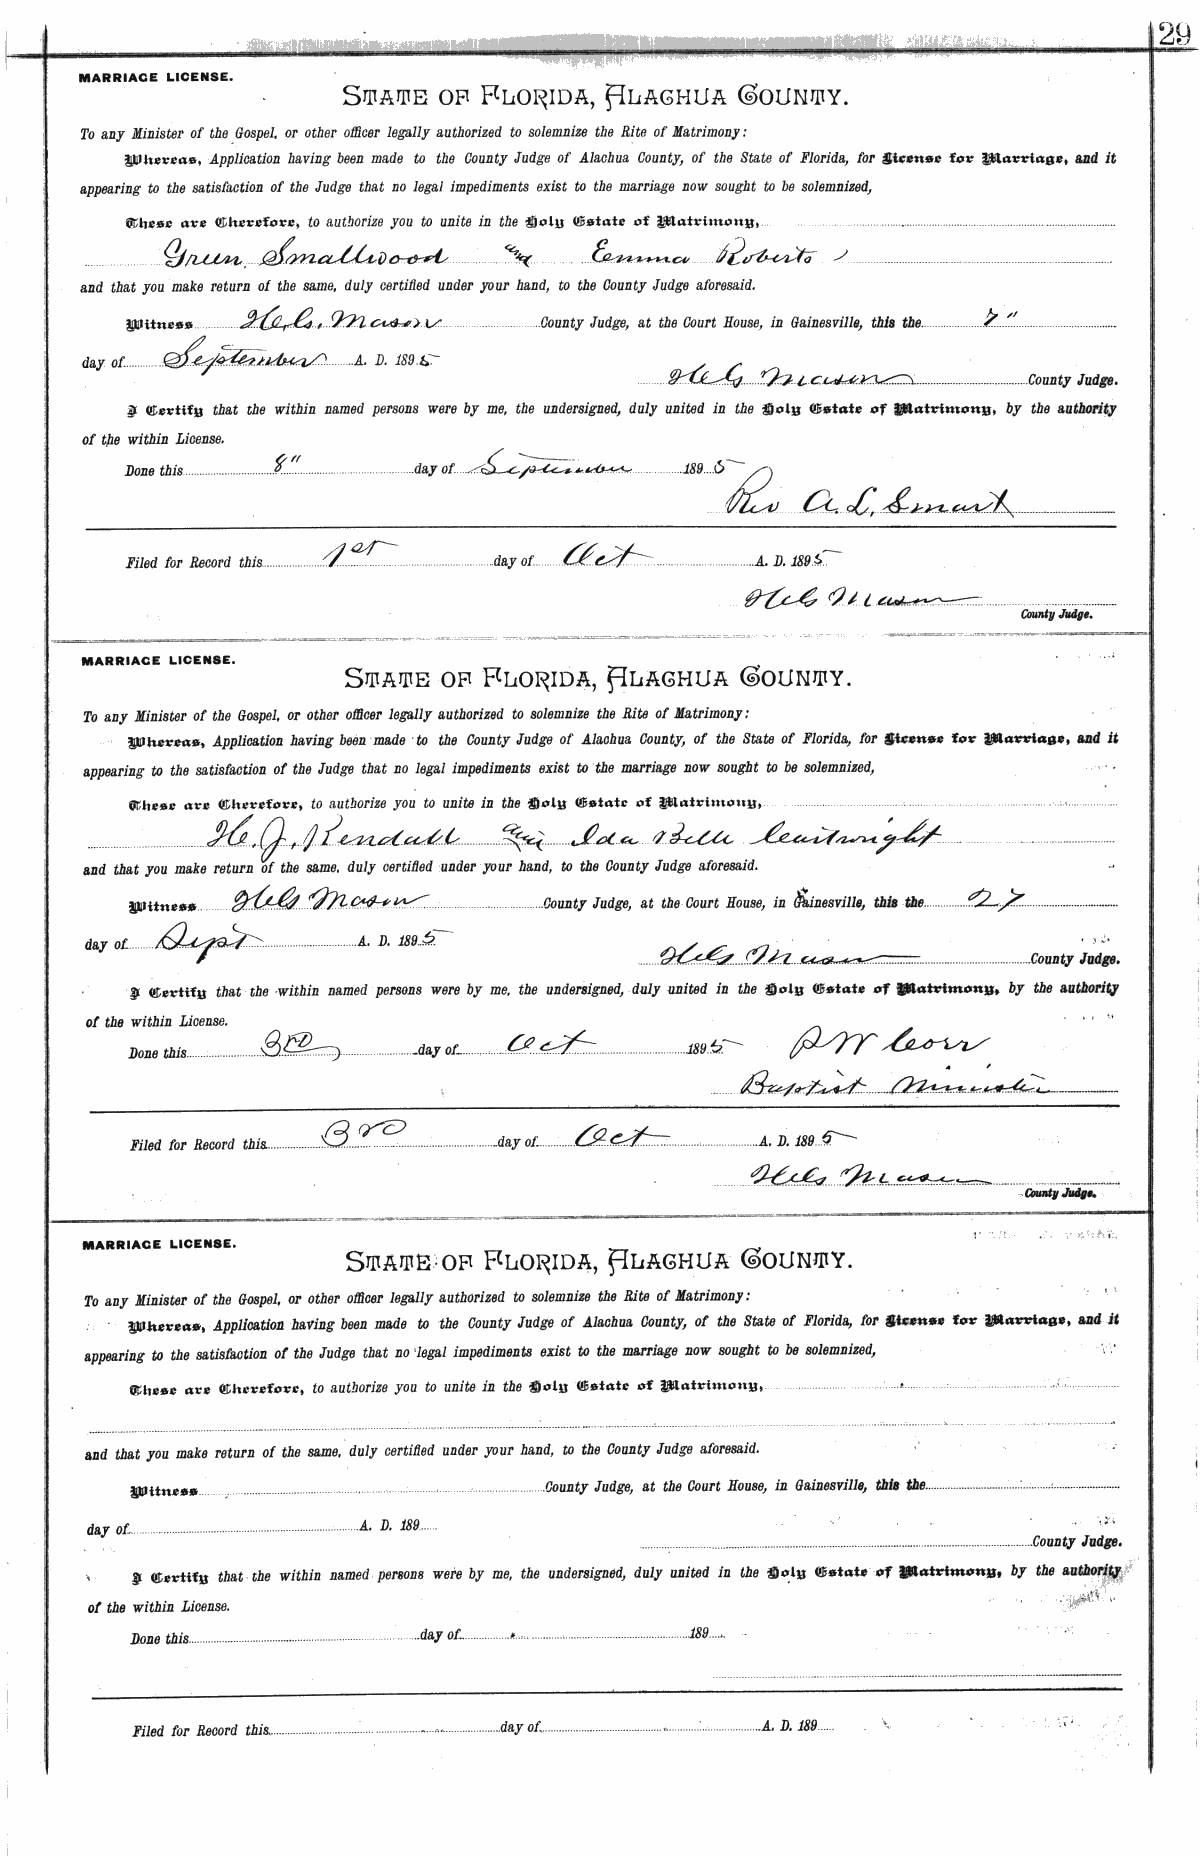 29
MARRIAGE LICENSE.
STATE OF FLORIDA, ALACHUA COUNTY.
To any Minister of the Gospel, or other officer legally authorized to solemnize the Rite of Matrimony:
Whereas, Application having been made to the County Judge of Alachua County, of the State of Florida, for License for Marriage, and it
appearing to the satisfaction of the Judge that no legal impediments exist to the marriage now sought to be solemnized,
These are Therefore, to authorize you to unite in the Holy Estate of Matrimony,
Green Smallwood and Emma Roberts
and that you make return of the same, duly certified under your hand, to the County Judge aforesaid.
Witness Mason County Judge, at the Court House, in Gainesville, this the 7"
day of September A. D. 1895
Mason County Judge.
I Certify that the within named persons were by me, the undersigned, duly united in the Holy Estate of Matrimony, by the authority
of the within License.
Done this 8" day of September 1895
Rev A. L. Smart
Filed for Record this 1st day of Oct A. D. 1895
Mason
County Judge.
MARRIAGE LICENSE.
STATE OF FLORIDA, ALACHUA COUNTY.
To any Minister of the Gospel, or other officer legally authorized to solemnize the Rite of Matrimony:
Whereas, Application having been made to the County Judge of Alachua County, of the State of Florida, for License for Marriage, and it
appearing to the satisfaction of the Judge that no legal impediments exist to the marriage now sought to be solemnized,
These are Therefore, to authorize you to unite in the Holy Estate of Matrimony,
H. J. Kendall and Ida Belle
and that you make return of the same, duly certified under your hand, to the County Judge aforesaid.
Witness Mason County Judge, at the Court House, in Gainesville, this the 27
day of Sept A. D. 1895
Mason County Judge.
I Certify that the within named persons were by me, the undersigned, duly united in the Holy Estate of Matrimony, by the authority
of the within License.
Done this 3rd day of Oct 1895
Baptist Minister
Filed for Record this 3rd day of Oct A. D. 1895
Mason
County Judge.
MARRIAGE LICENSE.
STATE OF FLORIDA, ALACHUA COUNTY.
To any Minister of the Gospel, or other officer legally authorized to solemnize the Rite of Matrimony:
Whereas, Application having been made to the County Judge of Alachua County, of the State of Florida, for License for Marriage, and it
appearing to the satisfaction of the Judge that no legal impediments exist to the marriage now sought to be solemnized,
These are Therefore, to authorize you to unite in the Holy Estate of Matrimony,
and that you make return of the same, duly certified under your hand, to the County Judge aforesaid.
Witness County Judge, at the Court House, in Gainesville, this the
day of A. D. 189
County Judge.
I Certify that the within named persons were by me, the undersigned, duly united in the Holy Estate of Matrimony, by the authority
of the within License.
Done this day of 189
Filed for Record this day of A. D. 189